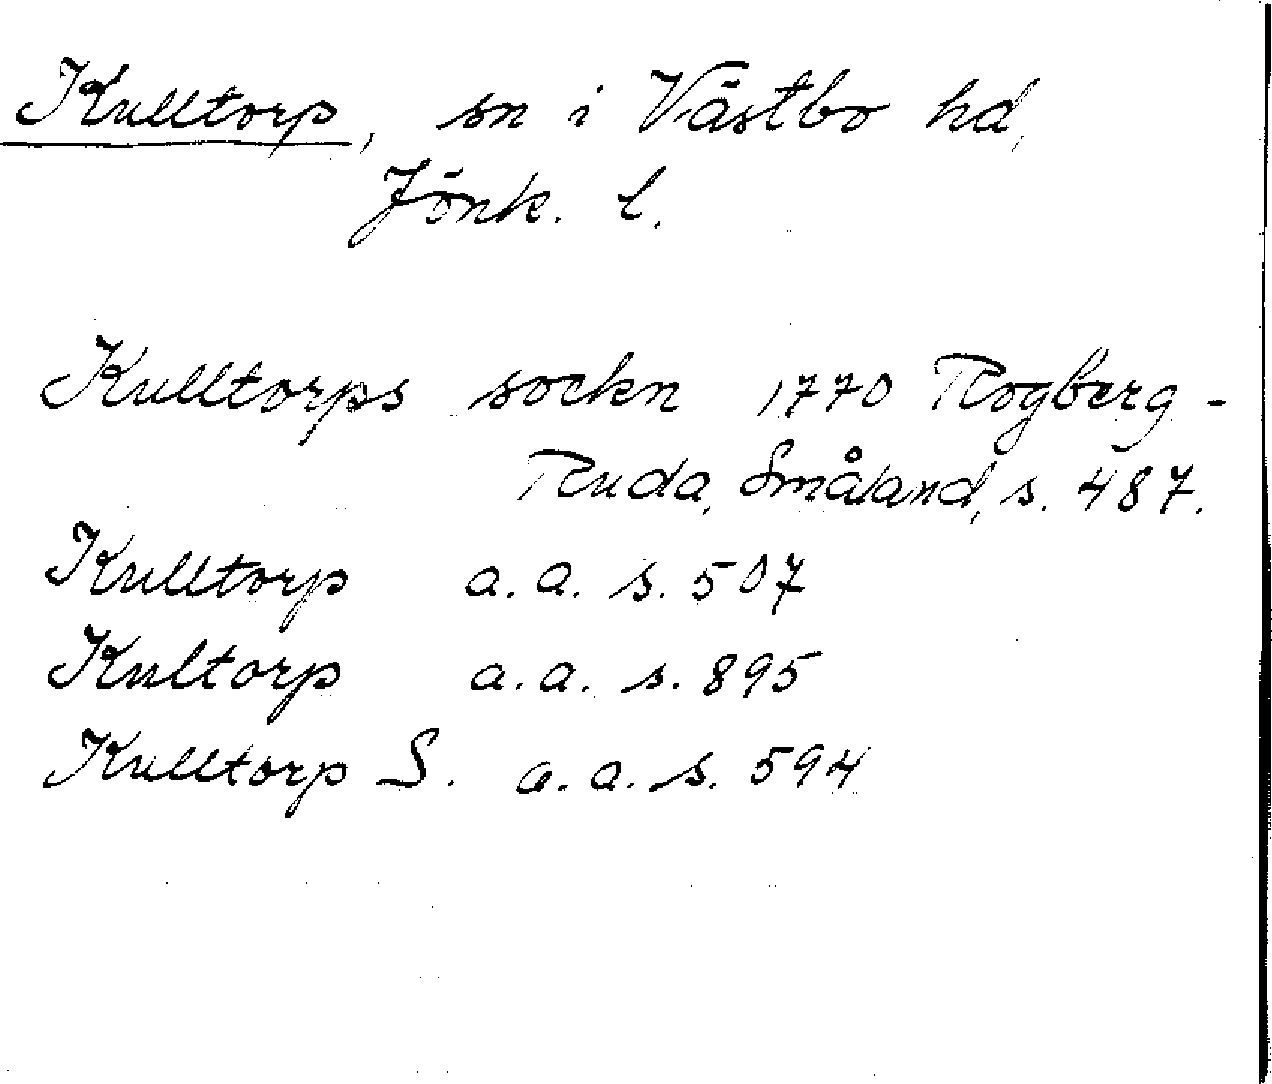 Kulltorp, sn i Västbo hd,
Jönk. l.
Kulltorps sockn 1770 Rogberg-
Ruda, Småland, s. 487.
Kulltorp a.a. s. 507
Kultorp a.a. s. 895
Kulltorp S. a.a. s. 594